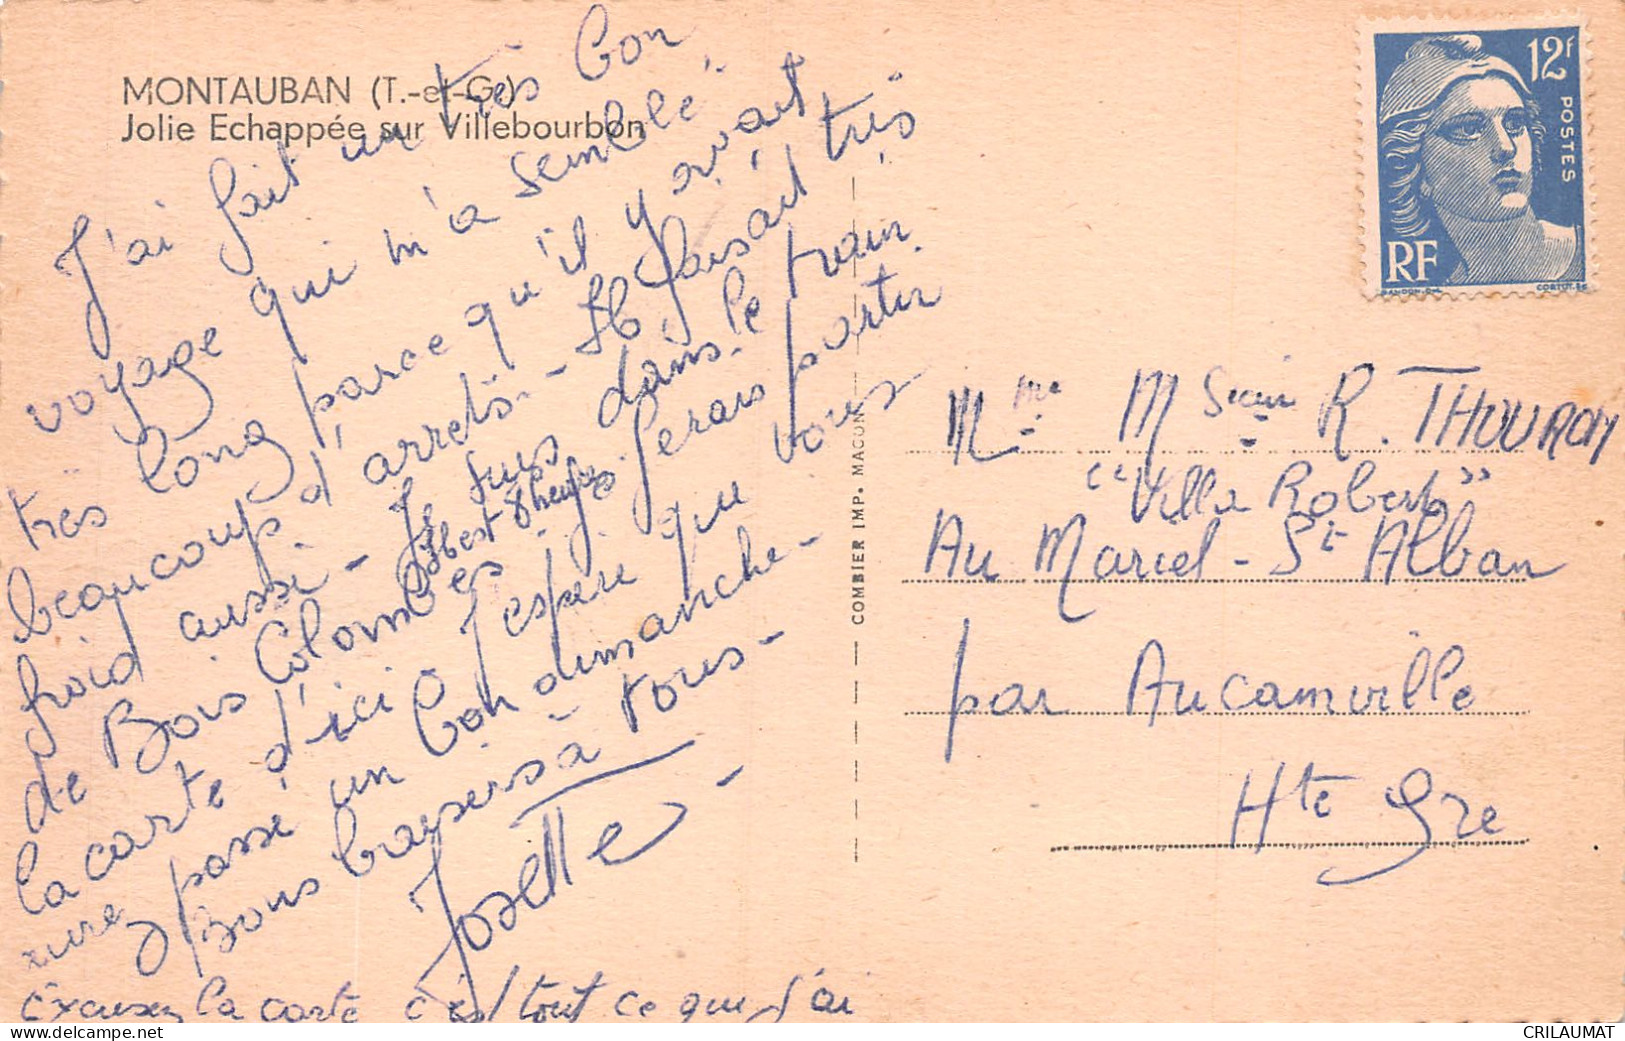 MONTAUBAN (T.-et-G.)
Jolie Echappée sur Villebourbon
J'ai fait un très bon
voyage qui m'a semblé
très long parce qu'il y avait
beaucoup d'arrêts - Il faisait très
froid aussi - Je suis dans le train
de Bois Colombes. Je ferais partir
la carte d'ici J'espère que vous
avez passé un bon dimanche -
Bons baisers à tous -
Josette
Excusez la carte c'est tout ce que j'ai
COMBIER IMP. MACON
12f
POSTES
RF
GANDON. DEL
CORTOT. SC
Mme M R. THOURON
"Villa Robert"
Au Marcel - St Alban
par Aucamville
Hte Gne
CRILAUMAT